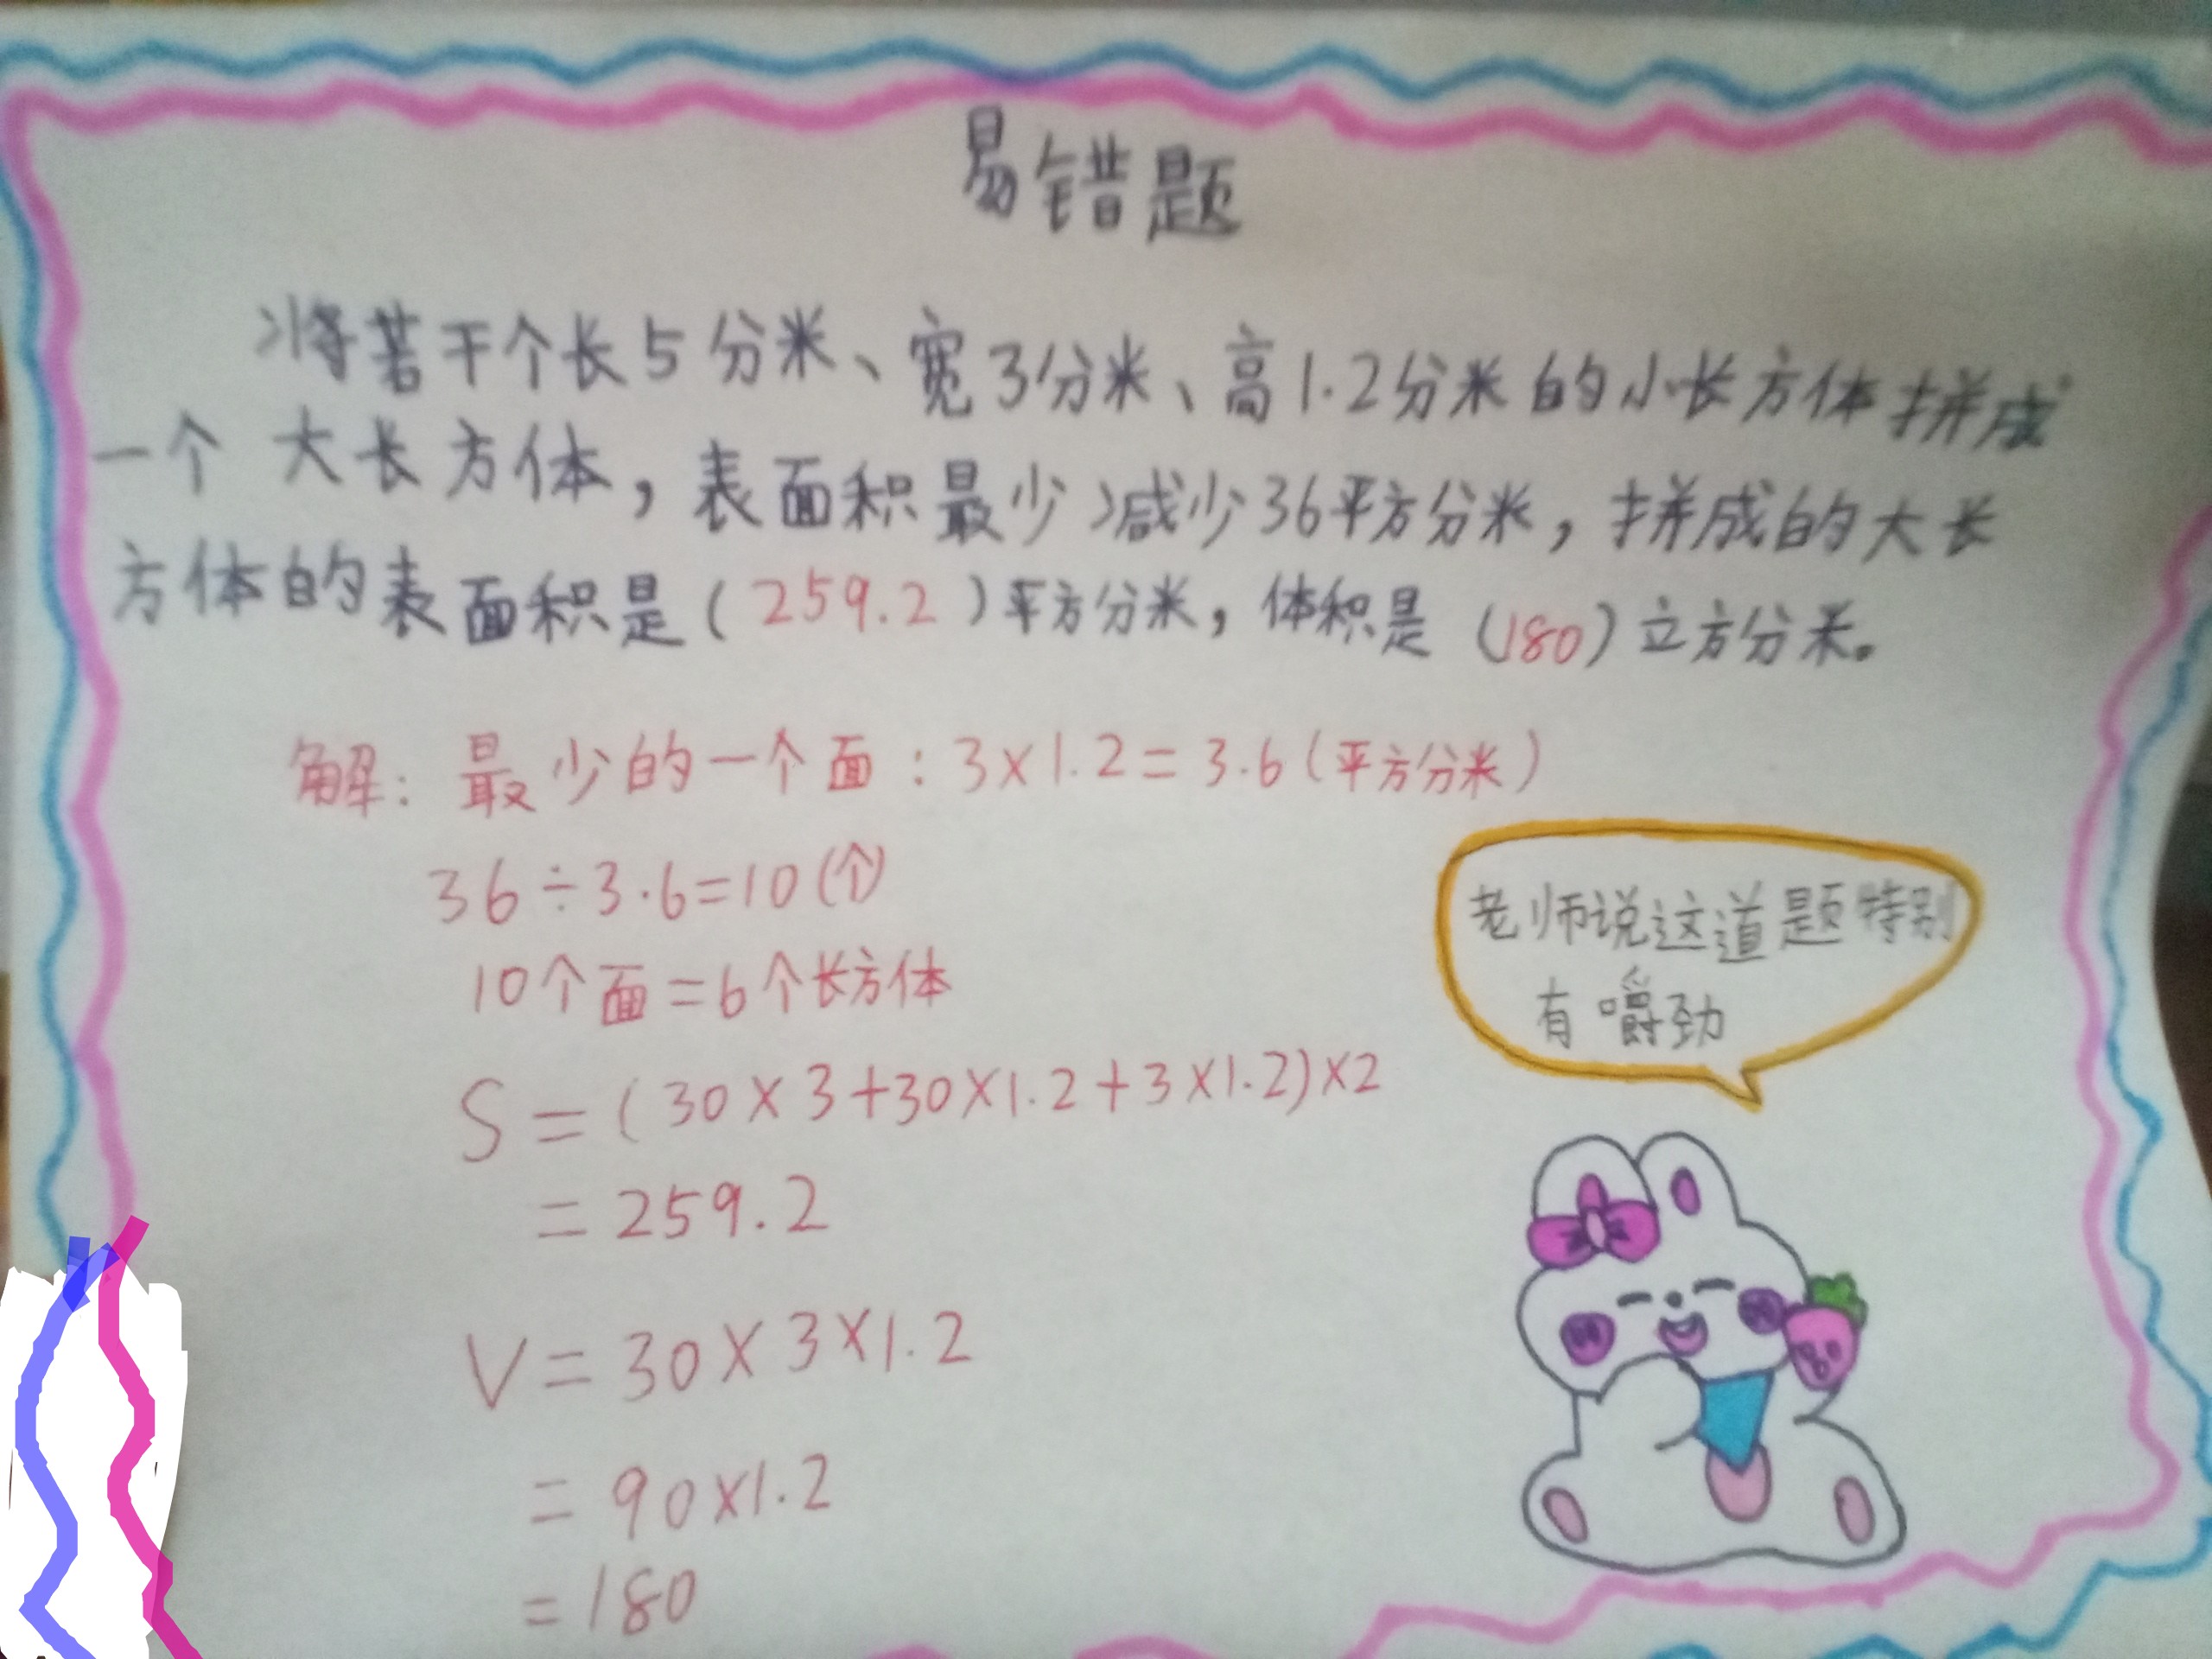 易错题
将若干个长5分米、宽3分米、高1.2分米的小长方体拼成
一个大长方体，表面积最少减少36平方分米，拼成的大长
方体的表面积是(259.2)平方分米，体积是(180)立方分米。
解：最少的一个面：3×1.2=3.6(平方分米)
36÷3.6=10(个)
10个面=6个长方体
S=(30×3+30×1.2+3×1.2)×2
=259.2
V=30×3×1.2
=90×1.2
=180
老师说这道题特别
有嚼劲